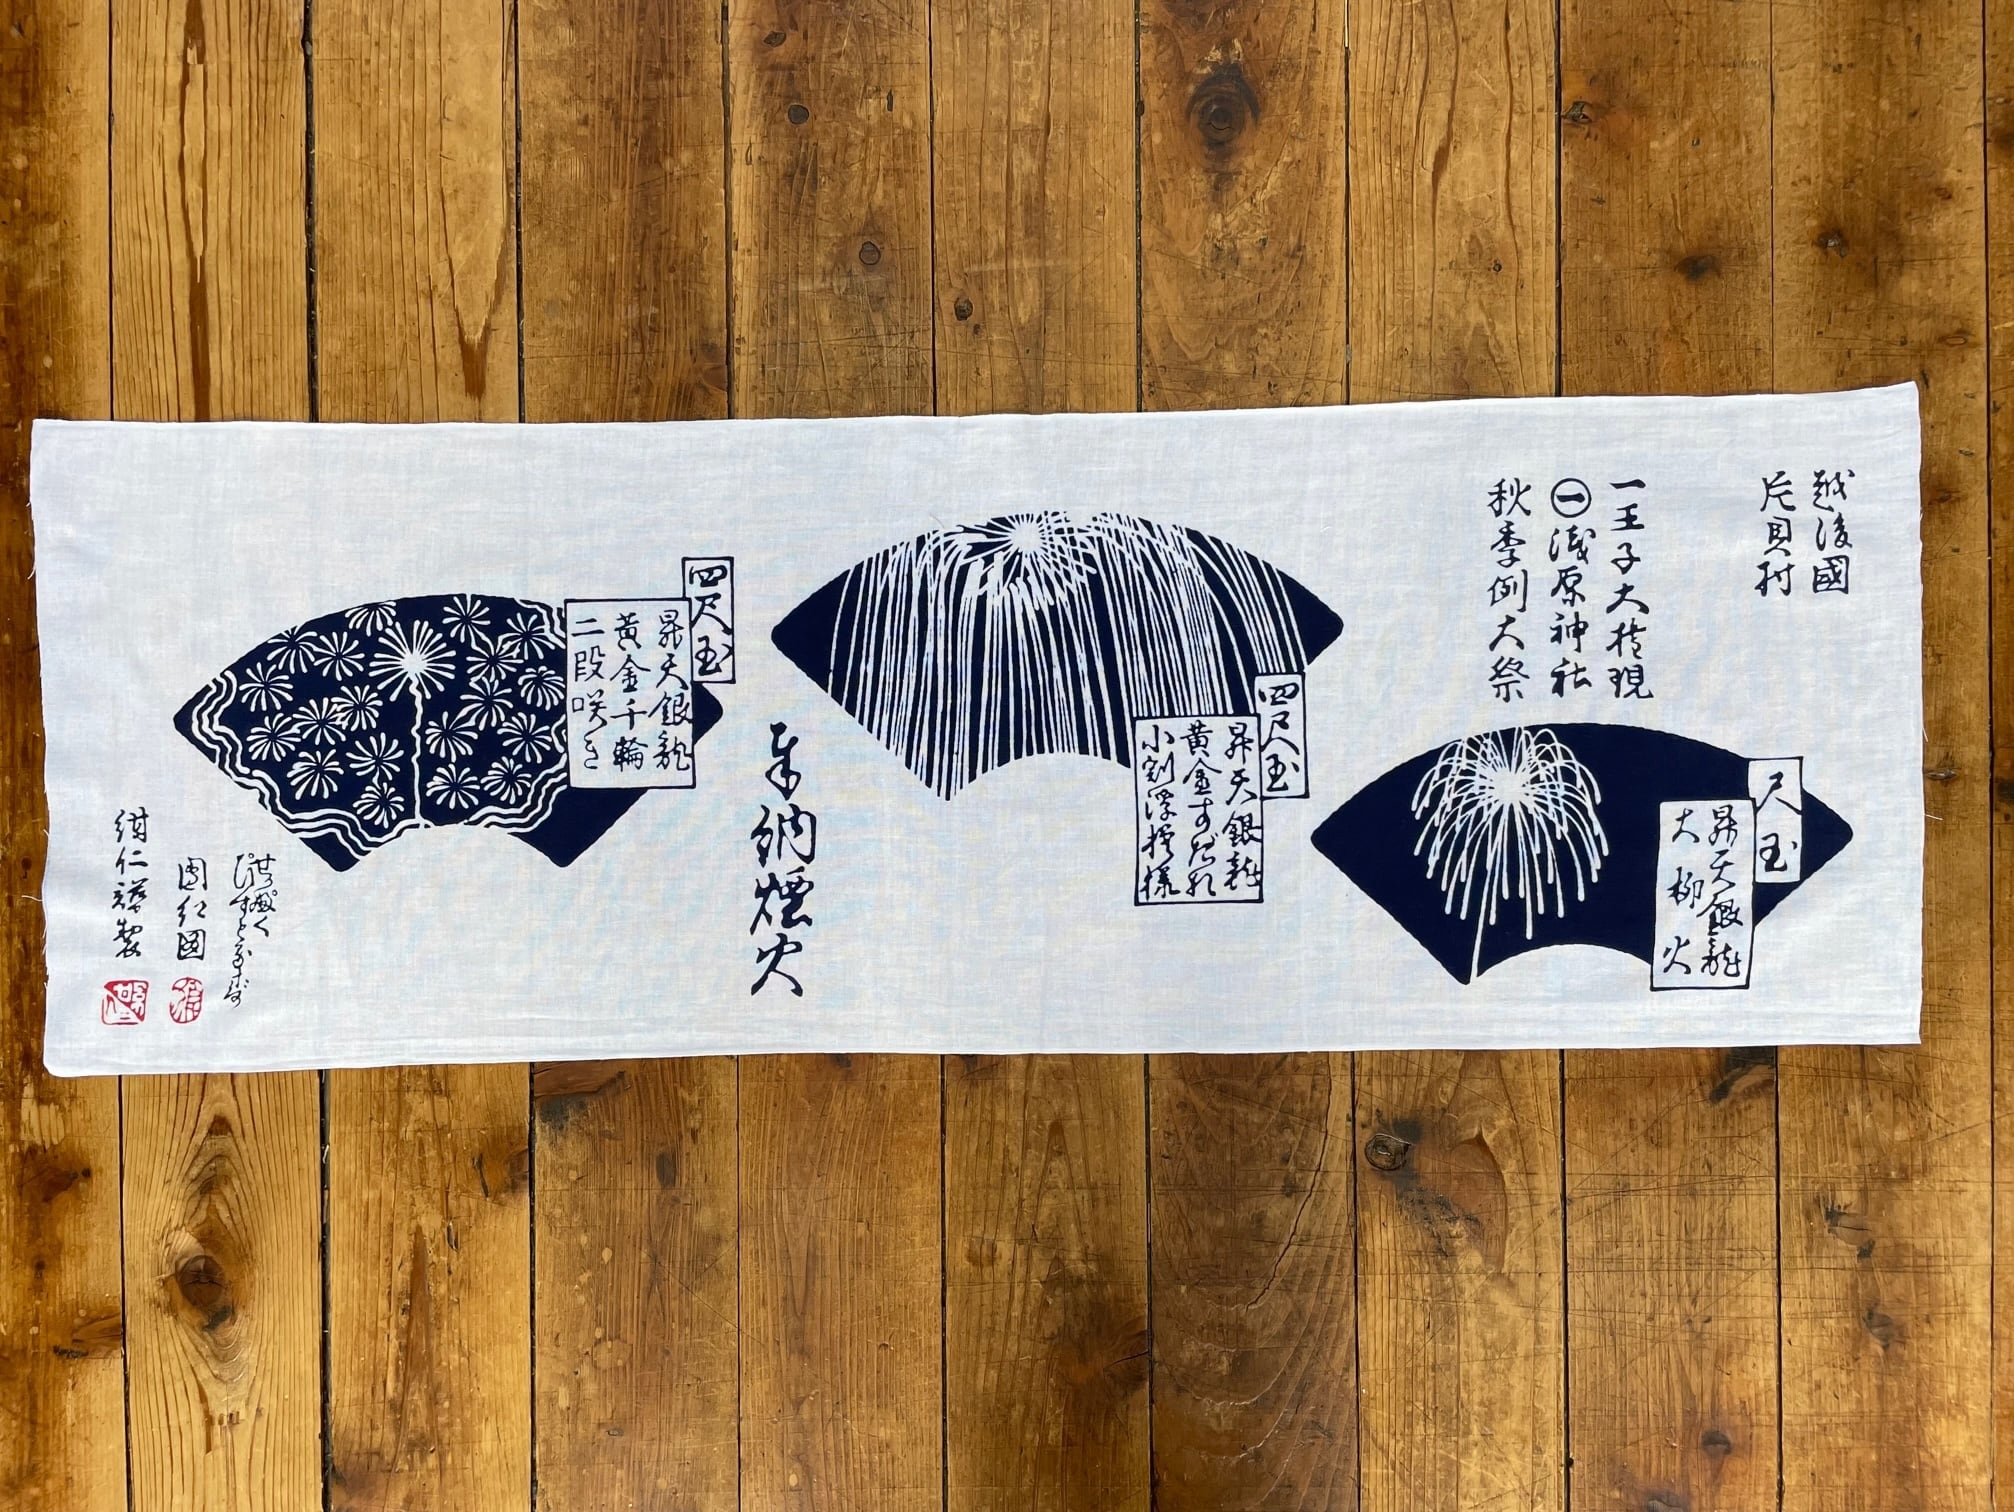 越後國
片貝村
一王子大権現
㊀浅原神社
秋季例大祭
尺玉
昇天銀龍
大柳火
四尺玉
昇天銀龍
黄金すだれ
小割浮模様
奉納煙火
四尺玉
昇天銀龍
黄金千輪
二段咲き
紺仁謹製